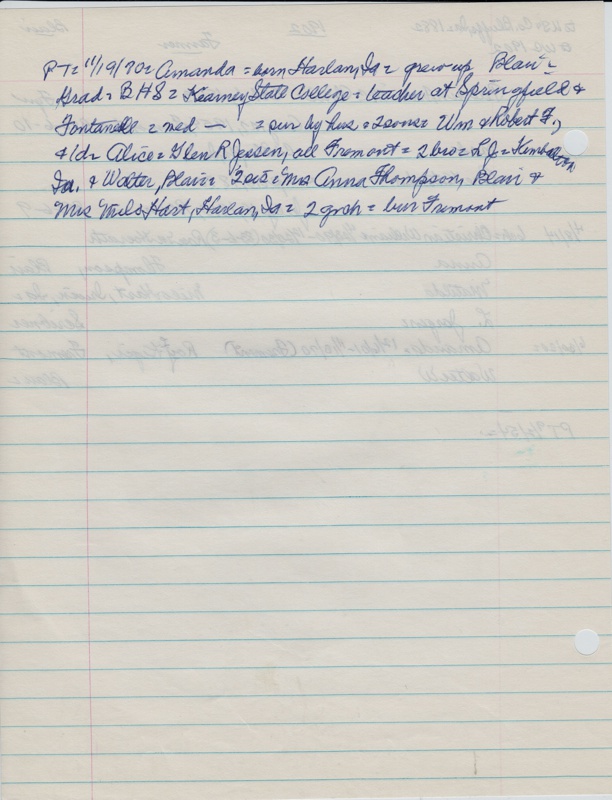 PT= 11/19/70= Amanda = born Harlan, Ia = grew up Blair =
Grad = BHS = Kearney State College = teacher at Springfield &
Fontanell = med — = sur by hus = 2 sons = Wm & Robert F.,
& 1d= Alice = Glen R Jessen, all Fremont = 2 bro = L.J. =
Ia. & Walter, Blair = 2 sis = Mrs Anna Thompson, Blair &
Mrs Niels Hart, Harlan, Ia = 2 grch = bur Fremont